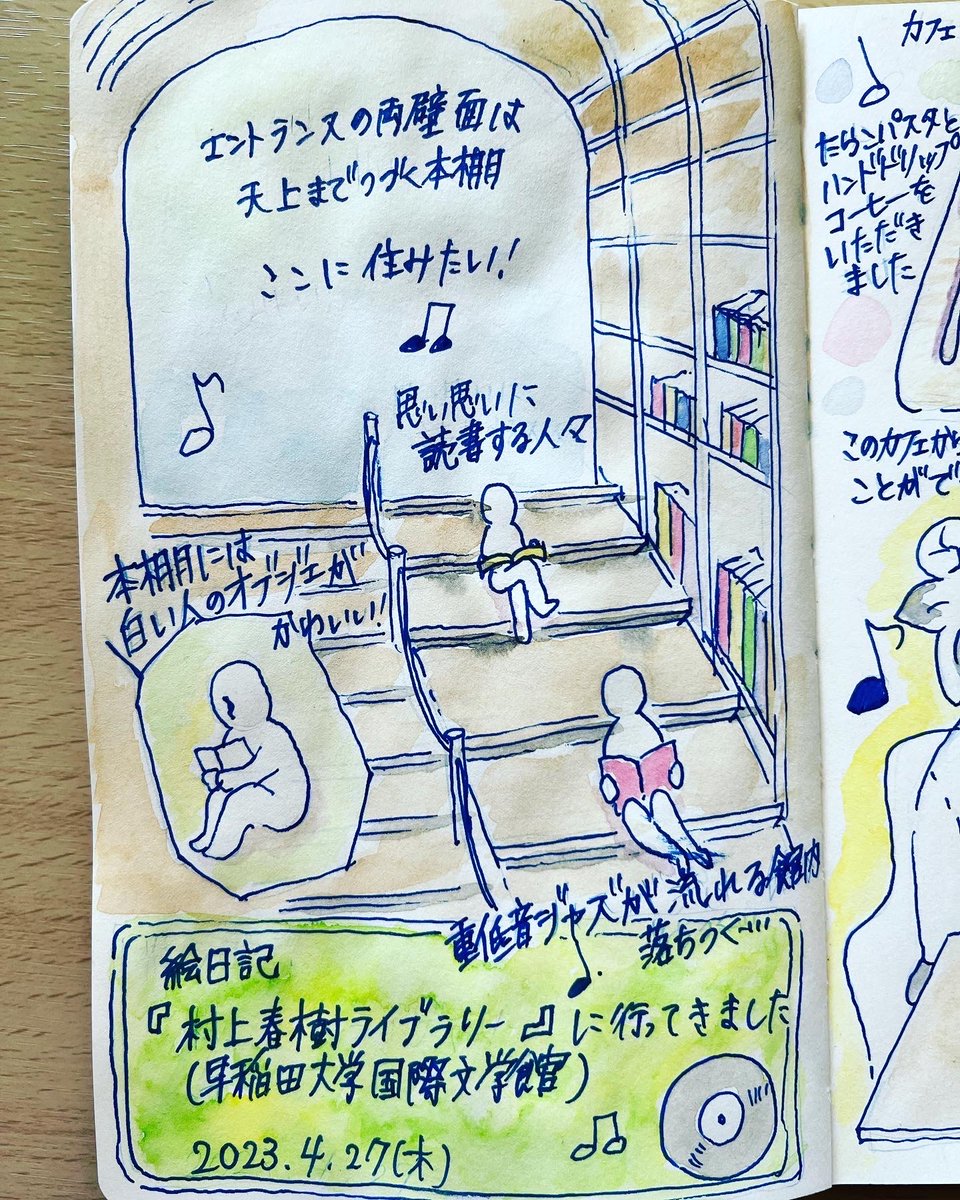 エントランスの両壁面は
天上までつづく本棚
ここに住みたい!
思い思いに
読書する人々
本棚には
白い人のオブジェが
かわいい!
重低音ジャズが流れる館内
落ちつく…
絵日記
『村上春樹ライブラリー』に行ってきました
(早稲田大学国際文学館)
2023.4.27(木)
カフェ
たらこパスタと
ハンドドリップ
コーヒーを
いただき
ました
このカフェから
ことがで